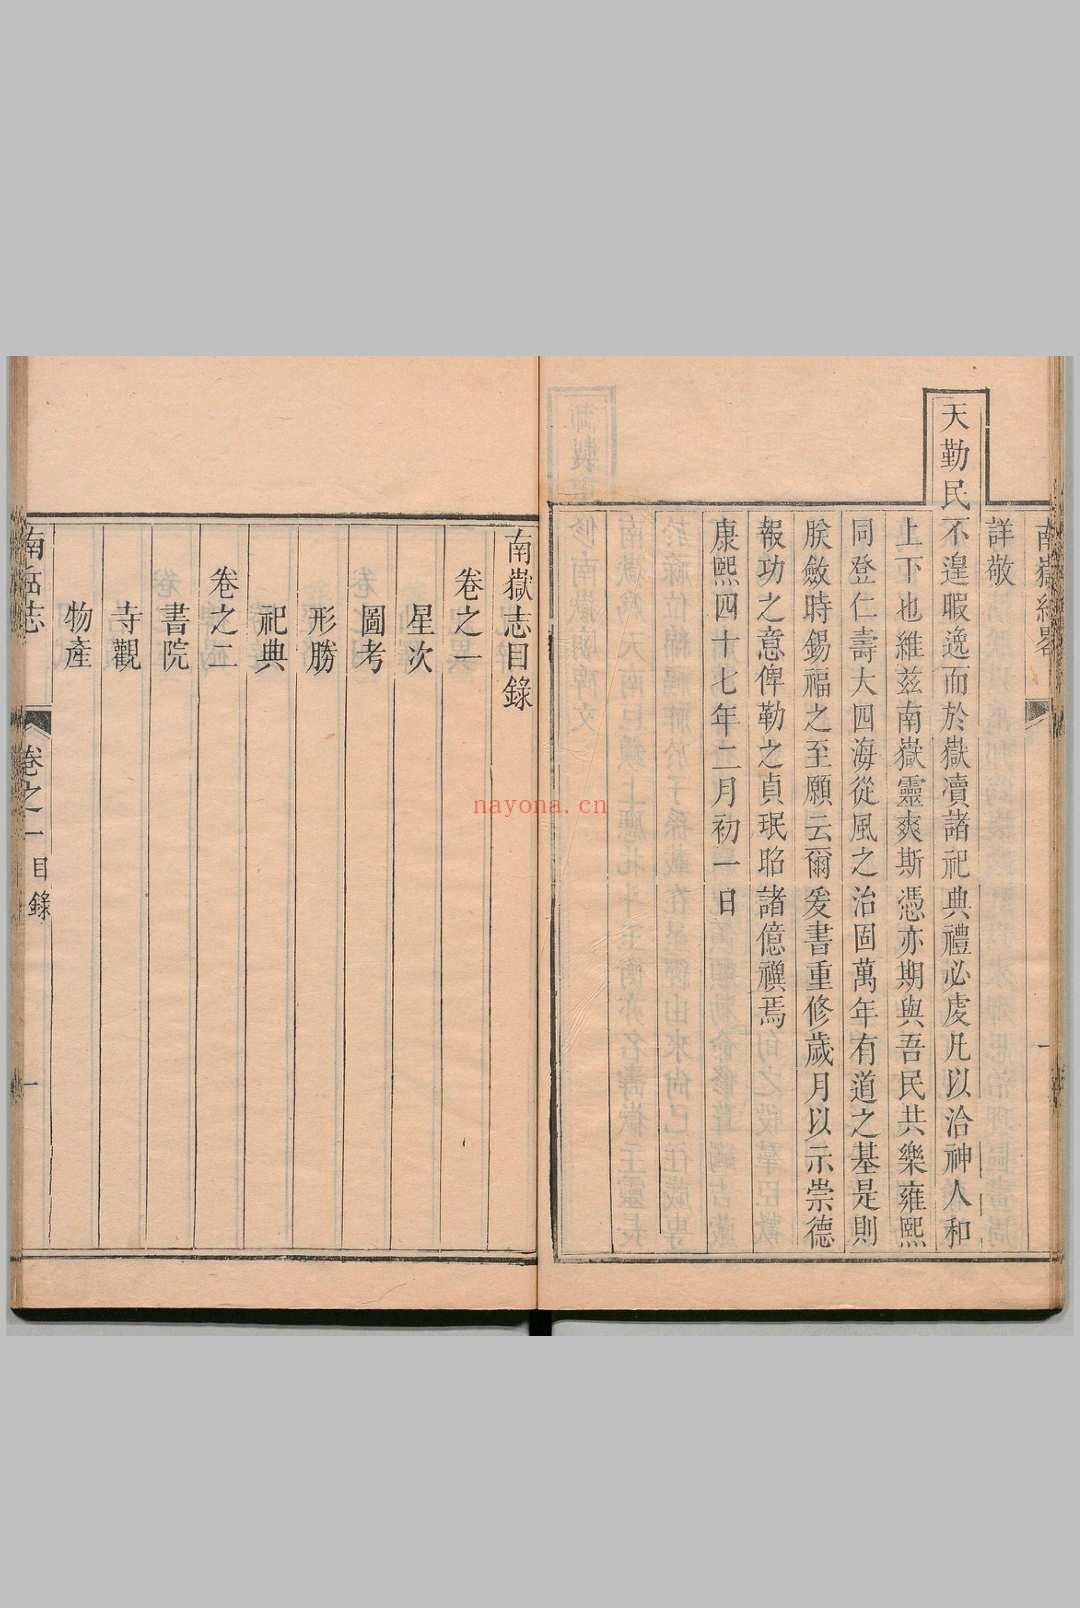 南嶽總畧
一
詳敬
天勤民不遑暇逸而於嶽凟諸祀典禮必虔凡以洽神人和
上下也維茲南嶽靈爽斯憑亦期與吾民共樂雍熙
同登仁壽大四海從風之治固萬年有道之基是則
朕斂時錫福之至願云爾爰書重修歲月以示崇德
報功之意俾勒之貞珉昭諸億禩焉
康熙四十七年二月初一日
南嶽志目錄
卷之一
星次
圖考
形勝
祀典
卷之二
書院
寺觀
物產
南岳志
卷之一
目錄
一
nayona.cn